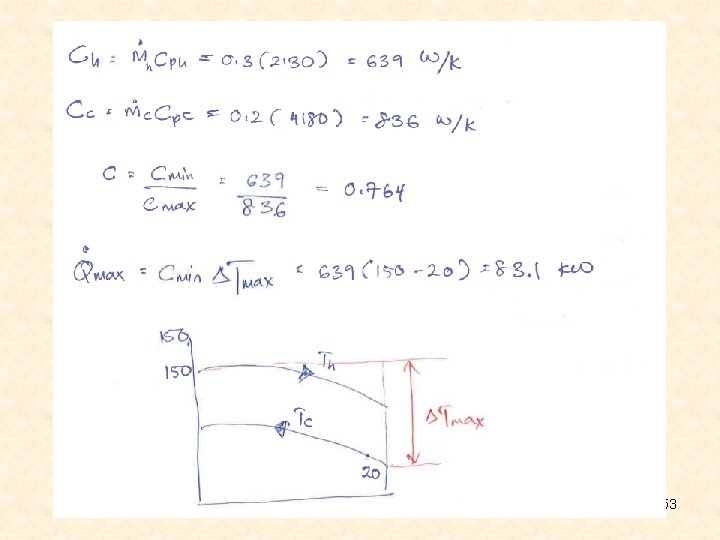 Ch = ṁh Cph = 0.3 (2130) = 639 W/K
Cc = ṁc Cpc = 0.2 ( 4180) = 836 W/K
C = Cmin / Cmax = 639 / 836 = 0.764
Q̇max = Cmin ΔTmax = 639 (150 - 20) = 83.1 kW
150,
150
Th
Tc
ΔTmax
20
53